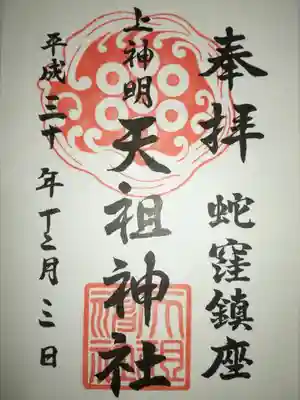 奉拝
蛇窪鎮座
上神明
天祖神社
平成三十年十二月三日